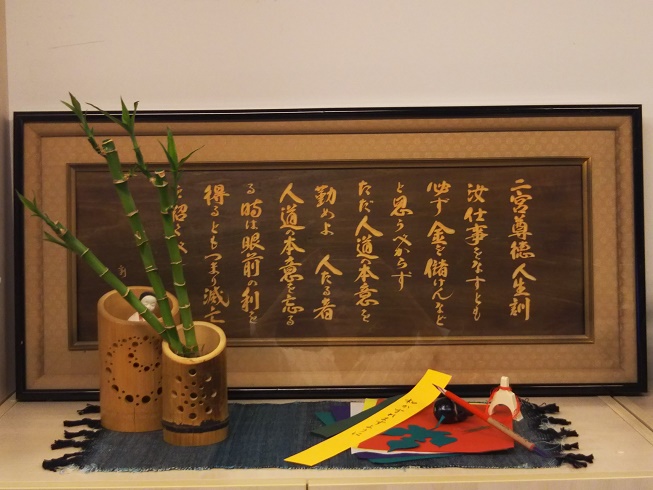 二宮尊徳 人生訓
汝仕事をなすとも
必ず金を儲けんなど
と思うべからず
ただ人道本意を
勤めよ 人たる者
人道の本意を忘る
る時は眼前の利を
得るともつまり滅亡
招く